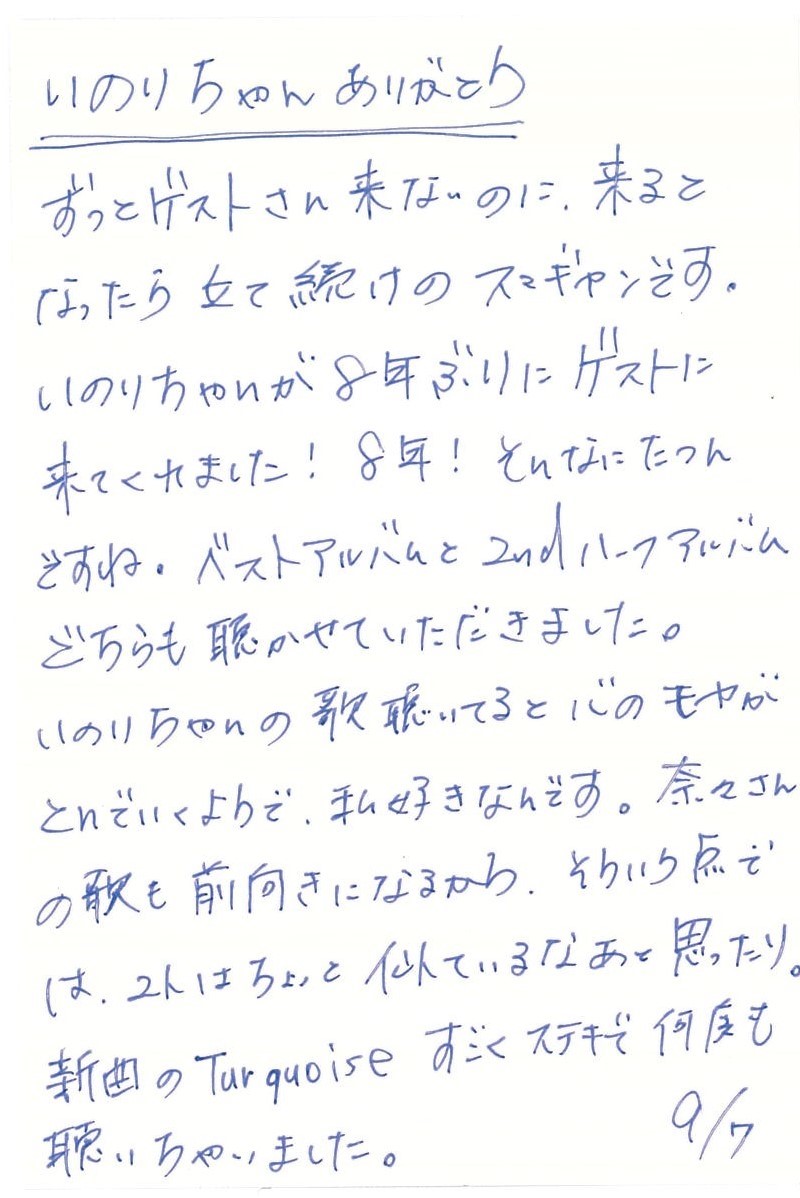 いのりちゃんありがとう
ずっとゲストさん来ないのに、来ると
なったら立て続けのスマギャンです。
いのりちゃんが8年ぶりにゲストに
来てくれました！8年！そんなにたつん
ですね。ベストアルバムと2ndハーフアルバム
どちらも聴かせていただきました。
いのりちゃんの歌聴いてると心のモヤが
とんでいくようで、私好きなんです。奈々さん
の歌も前向きになるから、そういう点で
は、2人はちょっと似ているなあと思ったり。
新曲のTurquoiseすごくステキで何度も
聴いちゃいました。
9/7